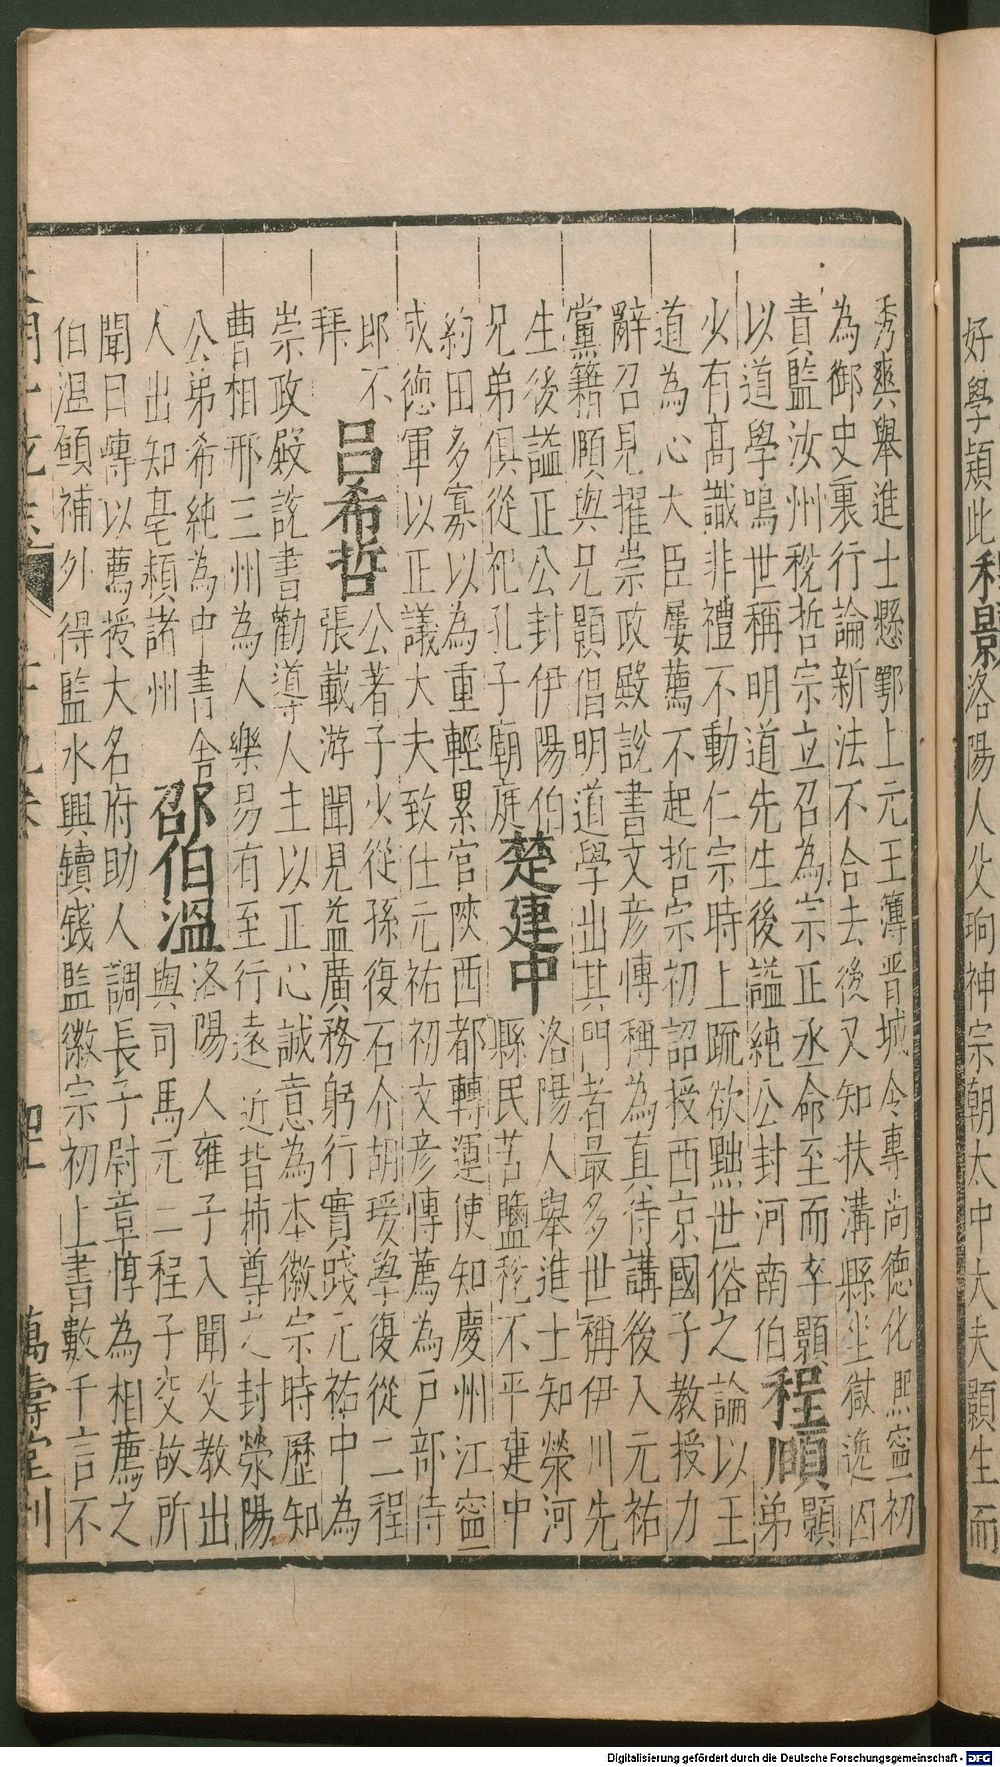 好學穎此程顥洛陽人父珦神宗朝太中大夫顥生而
秀爽舉進士縣鄠上元王簿晋城令專尚德化熙寧初
為御史裏行論新法不合去後又知扶溝縣坐獄逸囚
責監汝州稅哲宗立召為宗正丞命至而卒顥
以道學鳴世稱明道先生後謚純公封河南伯
程頤
顥
弟
少有高識非禮不動仁宗時上疏欲黜世俗之論以王
道為心大臣屢薦不起哲宗初詔授西京國子教授力
辭召見擢崇政殿說書文彥慱稱為真侍講後入元祐
黨籍頤與兄顥倡明道學出其門者最多世稱伊川先
生後謚正公封伊陽伯
兄弟俱從祀孔子廟庭
楚建中
洛陽人舉進士知滎河
縣民苦鹽稅不平建中
約田多寡以為重輕累官陝西都轉運使知慶州江寧
成德軍以正議大夫致仕元祐初文彥慱薦為戶部侍
郎不
拜
吕希哲
公著子少從孫復石介胡瑗學復從二程
張載游聞見益廣務躬行實踐元祐中為
崇政殿說書勸導人主以正心誠意為本徽宗時歷知
曹相邢三州為人樂易有至行遠近皆師尊之封滎陽
公弟希純為中書舍
人出知亳頴諸州
邵伯溫
洛陽人雍子入聞父教出
與司馬元二程子交故所
聞日慱以薦授大名府助人調長子尉章惇為相薦之
伯温願補外得監永興鑄錢監徽宗初上書數千言不
萬壽堂刊
Digitalisierung gefördert durch die Deutsche Forschungsgemeinschaft - DFG